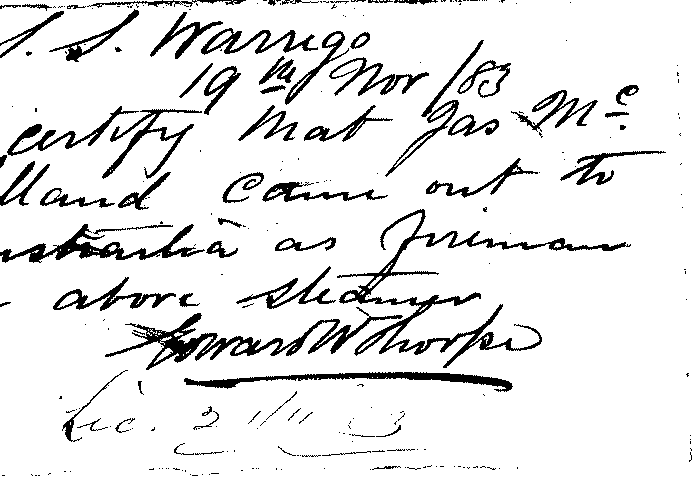 S. S. Warrego
19th Nov /83
certify that Jas Mc
lland came out to
ustralia as fireman
above steamer
Edward W Thorpe
Lic. 2